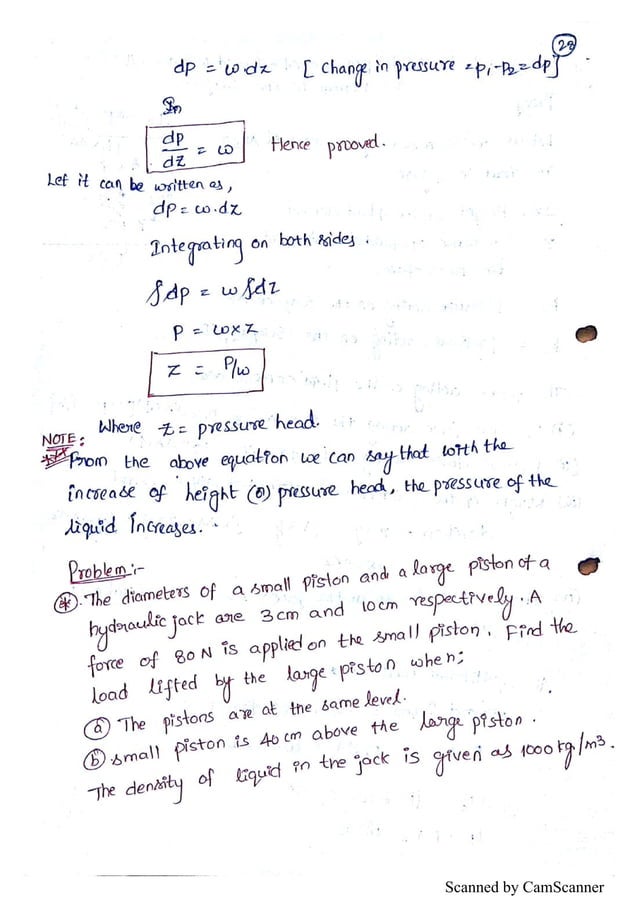 28
dp = ω.dz [Change in pressure = p₁-p₂ = dp]
In
dp/dz = ω Hence prooved.
Let it can be written as,
dp = ω.dz
Integrating on both sides.
∫dp = ω∫dz
P = ω×Z
Z = P/ω
Where Z = pressure head.
NOTE:
*** From the above equation we can say that with the
increase of height (or) pressure head, the pressure of the
liquid Increases.
Problem:-
(*). The diameters of a small piston and a large piston of a
hydraulic jack are 3cm and 10cm respectively. A
force of 80N is applied on the small piston. Find the
load lifted by the large piston when:
(a) The pistons are at the same level.
(b) small piston is 40cm above the large piston.
The density of liquid in the jack is given as 1000 kg/m³.
Scanned by CamScanner